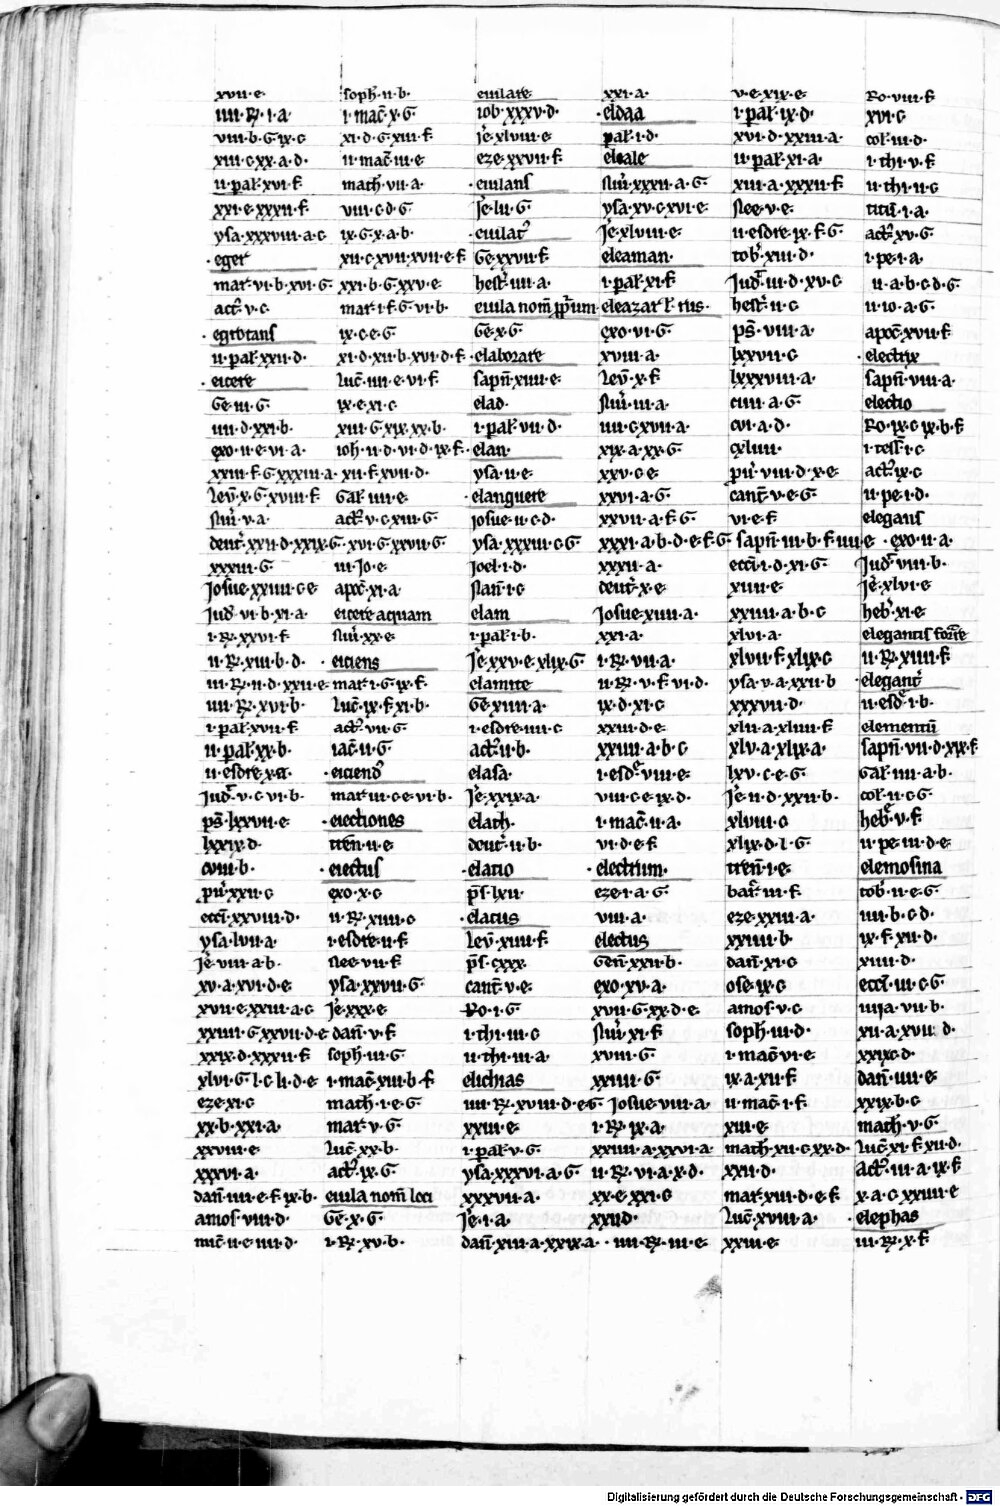 xvii·e·
iiii·R·i·a·
viii·b·G·ix·c
xiii·c·xx·a·d·
ii·pal·xvi·f
xxi·e·xxxii·f
ysa·xxxviii·a·c
·eger
mar·vi·b·xvi·G
act·v·c
·egrotans
ii·pal·xxii·d·
·eicere
Ge·iii·G
iiii·d·xxi·b·
exo·ii·e·vi·a·
xxiii·f·G·xxxiii·a·
lev·x·G·xviii·f
num·v·a·
deut·xxii·d·xxix·G·
xxxiii·G
Josue·xxiiii·c·e
Jud·vi·b·xi·a·
i·R·xxvi·f
ii·R·xiii·b·d·
iii·R·ii·d·xxii·e
iiii·R·xvi·b
i·pal·xvii·f
ii·pal·xx·b·
ii·esdre·x·a·
Jud·v·c·vi·b·
ps·lxxvii·e
lxxix·d·
cviii·b·
pu·xxii·c
ecci·xxviii·d·
ysa·lvii·a·
Je·viii·a·b·
xv·a·xvi·d·e
xvii·e·xxiii·a·c
xxiiii·G·xxvii·d·e
xxix·d·xxxii·f
xlvi·G·l·c·li·d·e
eze·xi·c
xx·b·xxi·a·
xxviii·e
xxxvi·a·
dan·iiii·e·f·ix·b·
amos·viii·d·
mic·ii·e·iiii·d·
soph·ii·b·
i·mac·x·G·
xi·d·G·xiii·f
ii·mac·iii·e
math·vii·a·
viii·c·d·G
ix·G·x·a·b·
xii·c·xvii·xvii·e·f
xxi·b·G·xxv·e
mar·i·f·G·vi·b·
ix·c·e·G
xi·d·xii·b·xvi·d·f·
luc·iiii·e·vi·f·
ix·e·xi·c
xiii·G·xix·xx·b·
ioh·ii·d·vi·d·ix·f·
xii·f·xvii·d·
Gal·iiii·e·
act·v·c·xiii·G
xvi·G·xxvii·G
iii·Jo·e·
apoc·xi·a
eicere aquam
num·xx·e
·eiciens
mar·i·G·ix·f·
luc·ix·f·xi·b·
act·vii·G
iac·ii·G
·eiciend
mar·iii·c·e·vi·b·
·eiectiones
tren·ii·e
·eiectus
exo·x·c
ii·R·xiiii·c
i·esdre·ii·f
nee·vii·f
ysa·xxvii·G
Je·xxx·e
dan·v·f
soph·iii·G
i·mac·xiii·b·f
math·i·e·G
mar·v·G
luc·xx·b·
act·ix·G
eiula nom loci
Ge·x·G
i·R·xv·b·
eiulare
iob·xxxv·d·
Je·xlviii·e
eze·xxvii·f
·eiulans
Je·lii·G
·eiulat
Ge·xxvii·f
hest·iiii·a·
eiula nom pprium
Ge·x·G
·elaborare
sapn·xiiii·e·
elad·
i·pal·vii·d·
·elan·
ysa·ii·e
·elanguere
Josue·ii·c·d·
ysa·xxxiii·c·G
Joel·i·d·
nau·i·c
elam
i·pal·i·b·
Je·xxv·e·xlix·G·
elamite
Ge·xiiii·a·
i·esdre·iiii·c
act·ii·b·
elasa·
Je·xxix·a·
elath·
deut·ii·b·
·elatio
ps·lxii·
·elatus
lev·xiiii·f
ps·cxxx·
cant·v·e·
Ro·i·G
i·thi·iii·c
ii·thi·iii·a·
elichias
iiii·R·xviii·d·e·G
xxiii·e
i·pal·v·G·
ysa·xxxvi·a·G
xxxvii·a·
Je·i·a·
dan·xiii·a·xxix·a·
xxi·a·
·eldaa
pal·i·d·
eleale
num·xxxii·a·G·
ysa·xv·c·xvi·e·
Je·xlviii·e
eleaman·
i·pal·xi·f
eleazar l rus·
exo·vi·G
xviii·a·
lev·x·f
num·iii·a·
iiii·c·xvii·a·
xix·a·xx·G·
xxv·c·e
xxvi·a·G·
xxvii·a·f·G
xxxi·a·b·d·e·f·G
xxxii·a·
deut·x·e
Josue·xiiii·a·
xxi·a·
i·R·vii·a·
ii·R·v·f·vi·d·
ix·d·xi·c
xxiii·d·e
xxiiii·a·b·c
i·esd·viii·e
viii·c·e·ix·d·
i·mac·ii·a·
vi·d·e·f
·electrum·
eze·i·a·G·
viii·a·
electus
Gen·xxii·b·
exo·xv·a·
xvii·G·xx·d·e
num·xi·f
xviii·G
xxiiii·G
Josue·viii·a·
i·R·ix·a·
xxiiii·a·xxvi·a
ii·R·vi·a·x·d·
xx·e·xxi·c
xxiid·
·iiii·R·iii·e
v·e·xix·e
i·pal·ix·d·
xvi·d·xxiii·a·
ii·pal·xi·a
xiii·a·xxxii·f
nee·v·e·
ii·esdre·ix·f·G·
tob·xiii·d·
Jud·iii·d·xv·c
hest·ii·c
ps·viii·a·
lxxvii·c
lxxxviii·a·
ciiii·a·G·
cvi·a·d·
cxliii·
pu·viii·d·x·e
cant·v·e·G·
vi·e·f
sapn·iii·b·f·iiii·e
ecci·i·d·xi·G·
xiiii·e
xxiiii·a·b·c
xlvi·a·
xlvii·f·xlix·c
ysa·v·a·xxii·b
xxxvii·d·
xlii·a·xliiii·f
xlv·a·xlix·a·
lxv·c·e·G
Je·ii·d·xxii·b·
xlviii·c
xlix·d·l·G
tren·i·e
bar·iii·f
eze·xxiii·a·
xxiiii·b·
dan·xi·c
ose·ix·c
amos·v·c
soph·iii·d·
i·mac·vi·e
ix·a·xii·f
ii·mac·i·f
xiii·e
math·xii·c·xx·d·
xxii·d·
mar·xiii·d·e·f
luc·xviii·a·
xxiii·e·
Ro·viii·f
xvi·c
col·iii·d·
i·thi·v·f
ii·thi·ii·c
titu·i·a·
act·xv·G·
i·pe·i·a·
ii·a·b·c·d·G
ii·io·a·G·
apoc·xvii·f
·electrix
sapn·viii·a·
electio
Ro·ix·c·ix·b·f
i·tess·i·c
act·ix·c
ii·pe·i·d·
elegans
·exo·ii·a·
Jud·viii·b·
Je·xlvi·e
heb·xi·e
elegantis forme
ii·R·xiiii·f
·elegant
ii·esd·i·b·
elementu
sapn·vii·d·xix·f
Gal·iiii·a·b·
col·ii·c·G
heb·v·f
ii·pe·iii·d·e
elemosina
tob·ii·e·G
iiii·b·c·d·
ix·f·xii·d·
xiiii·d·
ecci·iii·c·G
iiija·vii·b·
xii·a·xvii·d·
xxix·d·
dan·iiii·e
xxix·b·c
math·v·G
luc·xi·f·xii·d·
act·iii·a·ix·f
x·a·c·xxiiii·e
·elephas
iii·R·x·f
Digitalisierung gefördert durch die Deutsche Forschungsgemeinschaft - DFG